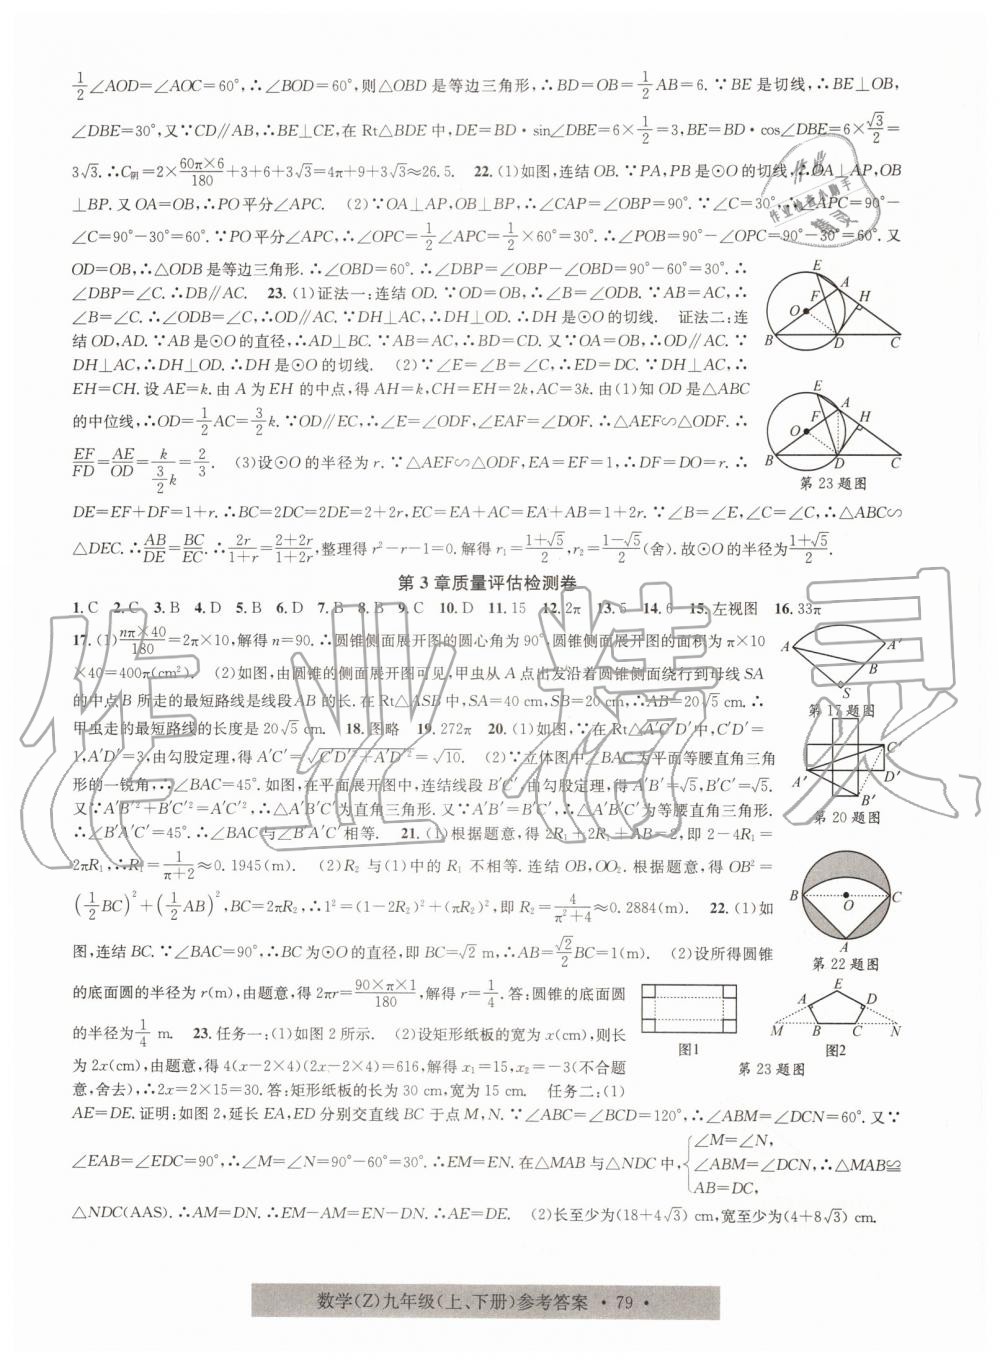 1/2∠AOD=∠AOC=60°,∴∠BOD=60°,则△OBD是等边三角形,∴BD=OB=1/2AB=6.∵BE是切线,∴BE⊥OB,
∠DBE=30°,又∵CD∥AB,∴BE⊥CE,在Rt△BDE中,DE=BD·sin∠DBE=6×1/2=3,BE=BD·cos∠DBE=6×√3/2=
3√3.∴C阴=2×60π×6/180+3+6+3√3=4π+9+3√3≈26.5. 22.(1)如图,连结OB.∵PA,PB是⊙O的切线,∴OA⊥AP,OB
⊥BP.又OA=OB,∴PO平分∠APC. (2)∵OA⊥AP,OB⊥BP,∴∠CAP=∠OBP=90°.∵∠C=30°,∴∠APC=90°-
∠C=90°-30°=60°.∵PO平分∠APC,∴∠OPC=1/2∠APC=1/2×60°=30°.∴∠POB=90°-∠OPC=90°-30°=60°.又
OD=OB,∴△ODB是等边三角形.∴∠OBD=60°.∴∠DBP=∠OBP-∠OBD=90°-60°=30°.∴
∠DBP=∠C.∴DB∥AC. 23.(1)证法一:连结OD.∵OD=OB,∴∠B=∠ODB.∵AB=AC,∴
∠B=∠C.∴∠ODB=∠C,∴OD∥AC.∵DH⊥AC,∴DH⊥OD.∴DH是⊙O的切线. 证法二:连
结OD,AD.∵AB是⊙O的直径,∴AD⊥BC.∵AB=AC,∴BD=CD.又∵OA=OB,∴OD∥AC.∵
DH⊥AC,∴DH⊥OD.∴DH是⊙O的切线. (2)∵∠E=∠B=∠C,∴ED=DC.∵DH⊥AC,∴
EH=CH.设AE=k.由A为EH的中点,得AH=k,CH=EH=2k,AC=3k.由(1)知OD是△ABC
的中位线,∴OD=1/2AC=3/2k.∵OD∥EC,∴∠E=∠ODF,∠EAF=∠DOF.∴△AEF∽△ODF.∴
EF/FD=AE/OD=k/(3/2k)=2/3. (3)设⊙O的半径为r.∵△AEF∽△ODF,EA=EF=1,∴DF=DO=r.∴
E
A
F
H
O
B
D
C
E
A
F
H
O
B
D
C
第23题图
DE=EF+DF=1+r.∴BC=2DC=2DE=2+2r,EC=EA+AC=EA+AB=1+2r.∵∠B=∠E,∠C=∠C,∴△ABC∽
△DEC.∴AB/DE=BC/EC.∴2r/(1+r)=(2+2r)/(1+2r),整理得r²-r-1=0.解得r₁=(1+√5)/2,r₂=(1-√5)/2(舍).故⊙O的半径为(1+√5)/2.
第3章质量评估检测卷
1.C 2.C 3.B 4.D 5.B 6.D 7.B 8.B 9.C 10.D 11.15 12.2π 13.5 14.6 15.左视图 16.33π
17.(1)nπ×40/180=2π×10,解得n=90.∴圆锥侧面展开图的圆心角为90°,圆锥侧面展开图的面积为π×10
×40=400π(cm²). (2)如图,由圆锥的侧面展开图可见,甲虫从A点出发沿着圆锥侧面绕行到母线SA
的中点B所走的最短路线是线段AB的长.在Rt△ASB中,SA=40 cm,SB=20 cm,∴AB=20√5 cm.∴
甲虫走的最短路线的长度是20√5 cm. 18.图略 19.272π 20.(1)如图,∵在Rt△A′C′D′中,C′D′=
1,A′D′=3,由勾股定理,得A′C′=√(C′D′²+A′D′²)=√10. (2)∵立体图中∠BAC为平面等腰直角三角
形的一锐角,∴∠BAC=45°.如图,在平面展开图中,连结线段B′C′,由勾股定理,得A′B′=√5,B′C′=√5.
又∵A′B′²+B′C′²=A′C′²,∴△A′B′C′为直角三角形.又∵A′B′=B′C′,∴△A′B′C′为等腰直角三角形.
∴∠B′A′C′=45°.∴∠BAC与∠B′A′C′相等. 21.(1)根据题意,得2R₁+2R₁+AB=2,即2-4R₁=
2πR₁,∴R₁=1/(π+2)≈0.1945(m). (2)R₂与(1)中的R₁不相等.连结OB,OO₂.根据题意,得OB²=
(1/2BC)²+(1/2AB)²,BC=2πR₂,∴1²=(1-2R₂)²+(πR₂)²,即R₂=4/(π²+4)≈0.2884(m). 22.(1)如
图,连结BC.∵∠BAC=90°,∴BC为⊙O的直径,即BC=√2 m,∴AB=√2/2BC=1(m). (2)设所得圆锥
的底面圆的半径为r(m),由题意,得2πr=90×π×1/180,解得r=1/4.答:圆锥的底面圆
的半径为1/4 m. 23.任务一:(1)如图2所示. (2)设矩形纸板的宽为x(cm),则长
为2x(cm),由题意,得4(x-2×4)(2x-2×4)=616,解得x₁=15,x₂=-3(不合题
意,舍去),∴2x=2×15=30.答:矩形纸板的长为30 cm,宽为15 cm. 任务二:(1)
A
A′
B
S
第17题图
A′
C′
D′
B′
第20题图
B
O
C
A
第22题图
图1
E
A
D
M
B
C
N
图2
第23题图
AE=DE.证明:如图2,延长EA,ED分别交直线BC于点M,N.∵∠ABC=∠BCD=120°,∴∠ABM=∠DCN=60°.又∵
∠EAB=∠EDC=90°,∴∠M=∠N=90°-60°=30°.∴EM=EN.在△MAB与△NDC中,{∠M=∠N,
∠ABM=∠DCN,∴△MAB≌
AB=DC,
△NDC(AAS).∴AM=DN.∴EM-AM=EN-DN.∴AE=DE. (2)长至少为(18+4√3) cm,宽至少为(4+8√3) cm.
数学(Z)九年级(上、下册)参考答案 · 79 ·
作业精灵